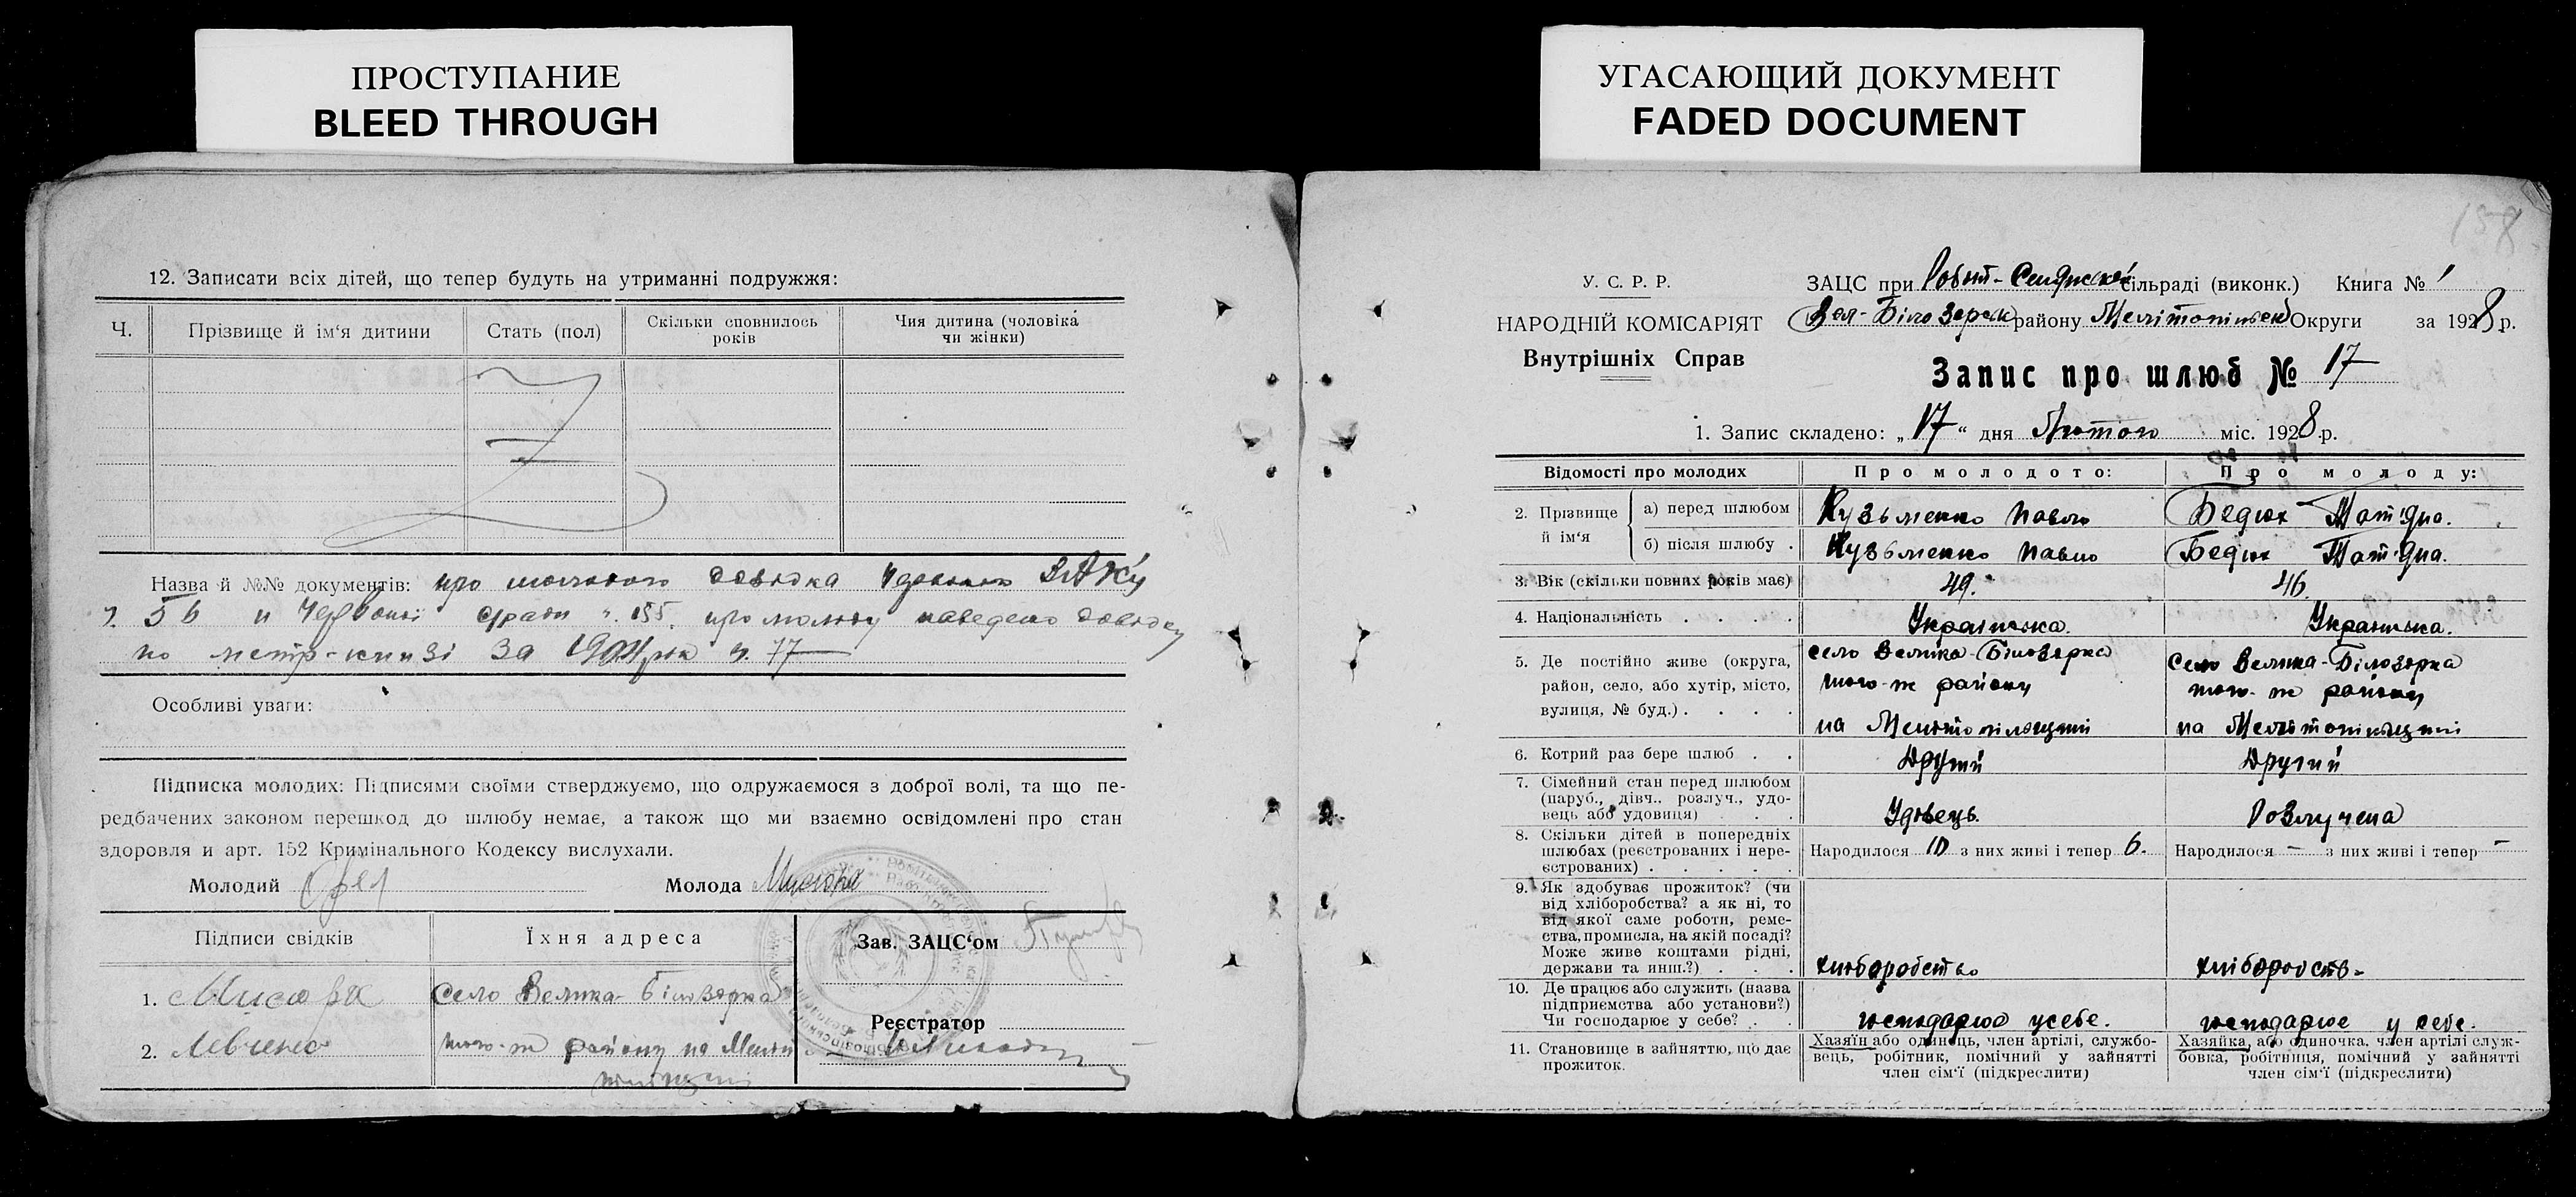 ПРОСТУПАНИЕ
BLEED THROUGH
УГАСАЮЩИЙ ДОКУМЕНТ
FADED DOCUMENT
12. Записати всіх дітей, що тепер будуть на утриманні подружжя:
Ч.
Прізвище й ім‘я дитини
Стать (пол)
Скільки сповнилось
років
Чия дитина (чоловіка
чи жінки)
Назва й №№ документів: про молодого довідка ЗАКу
56 и Червоної 155. про молоду наведено довідку
по метр-книзі за рік 77
Особливі уваги:
Підписка молодих: Підписями своїми стверджуємо, що одружаємося з доброї волі, та що пе-
редбачених законом перешкод до шлюбу немає, а також що ми взаємно освідомлені про стан
здоровля и арт. 152 Кримінального Кодексу вислухали.
Молодий
Молода Мисюра
Підписи свідків
Їхня адреса
Зав. ЗАЦС‘ом
1. Мисюра
село Велика-Білозорка
Реєстратор
2. Левченко
того-ж району на
158
У. С. Р. Р.
НАРОДНІЙ КОМІСАРІЯТ
Внутрішніх Справ
ЗАЦС при сільраді (виконк.) Книга № 1
Вел-Білозерськ району Мелітопільськ Округи за 1928 р.
Запис про шлюб № 17
1. Запис складено: „17“ дня Лютого міс. 1928 р.
Відомості про молодих
Про молодого:
Про молоду:
2. Прізвище й ім‘я
а) перед шлюбом
Кузьменко Павло
Бедюх
б) після шлюбу
Кузьменко Павло
Бедюх
3. Вік (скільки повних років має)
49.
46.
4. Національність
Українська.
Українська.
5. Де постійно живе (округа,
район, село, або хутір, місто,
вулиця, № буд.)
село Велика-Білозорка
того-ж району
на Мелітопільщині
село Велика-Білозорка
того-ж району
на Мелітопільщині
6. Котрий раз бере шлюб
Другий
Другий
7. Сімейний стан перед шлюбом
(паруб., дівч., розлуч., удо-
вець або удовиця)
Удовець.
Розлучена
8. Скільки дітей в попередніх
шлюбах (реєстрованих і нере-
єстрованих)
Народилося 10 з них живі і тепер 6.
Народилося – з них живі і тепер –
9. Як здобуває прожиток? (чи
від хліборобства? а як ні, то
від якої саме роботи, реме-
ства, промисла, на якій посаді?
Може живе коштами рідні,
держави та инш.?)
хліборобство
хліборобств-
10. Де працює або служить (назва
підприємства або установи?)
Чи господарює у себе?
господарює усебе.
господарює у себе.
11. Становище в зайняттю, що дає
прожиток.
Хазяїн або одинець, член артілі, службо-
вець, робітник, помічний у зайнятті
член сім‘ї (підкреслити)
Хазяйка, або одиночка, член артілі служ-
бовка, робітниця, помічний у зайнятті
член сім‘ї (підкреслити)